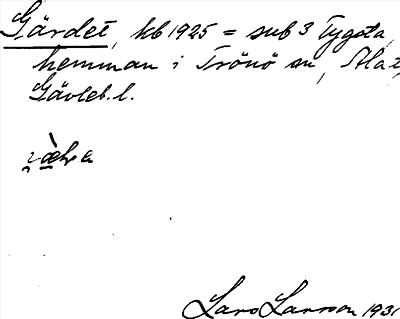 Gärdet, kb 1925 = sub 3 Tygsta,
hemman i Trönö sn, Ala
Gävleb. l.
Lars Larsson 1931